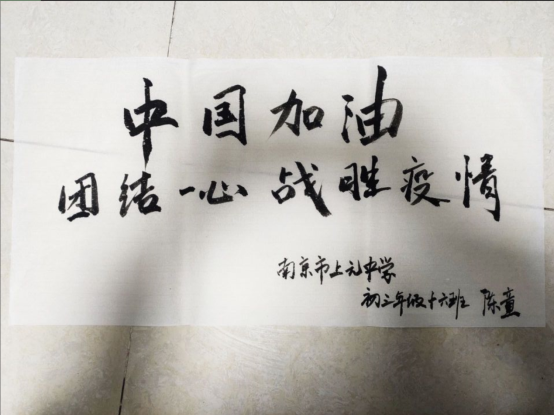 中国加油
团结一心 战胜疫情
南京市上元中学
初三年级十六班 陈童